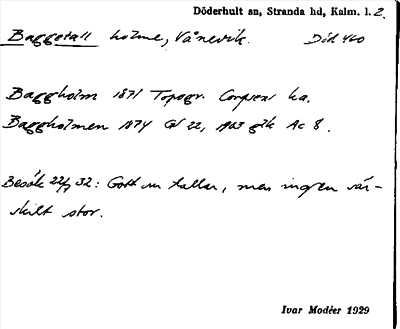 Döderhult sn, Stranda hd, Kalm. l. 2.
Baggetall holme, Vånevik. Död 460
Baggholm 1871 Topogr. Corpsens ka.
Baggholmen 1874 22, Ac 8.
Besök 22/7 32: Gott om tallar, men ingen sär-
skilt stor.
Ivar Modéer 1929